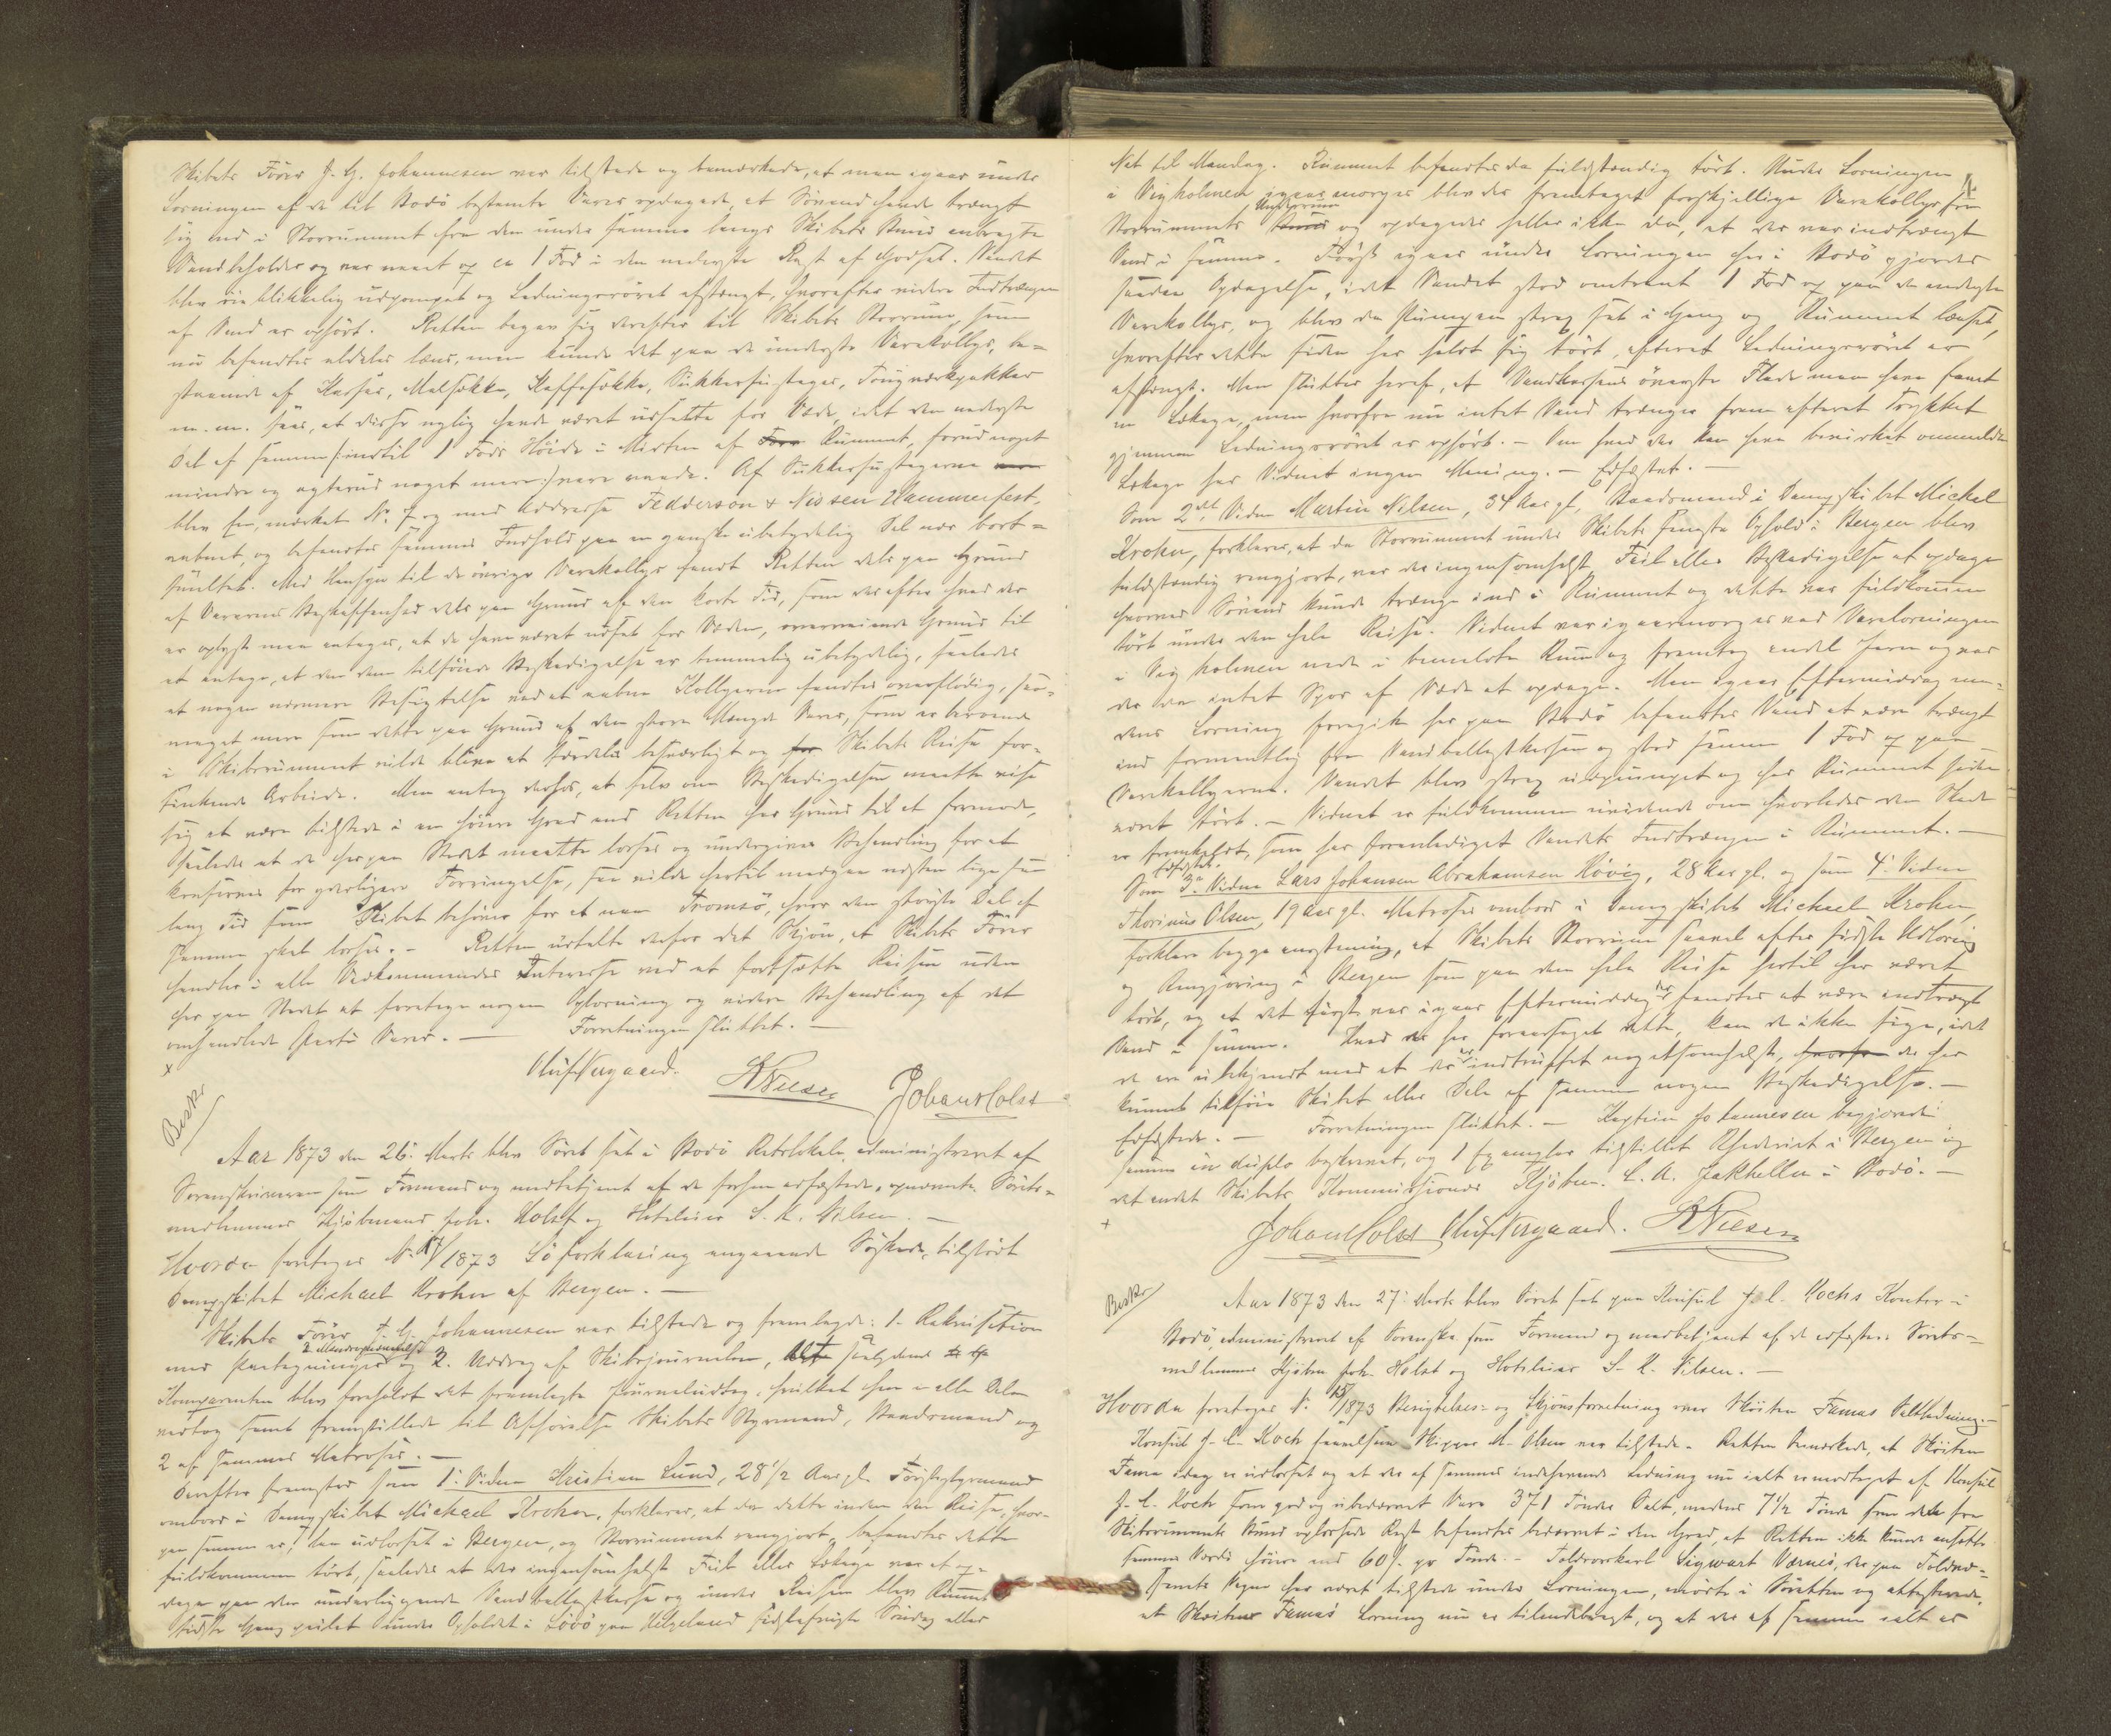 Skibets Fører J. G. Johannesen var tilstede og bemærkede, at man igaar under
Losningen af de til Bodö bestemte Varer opdagede, at Søvand havde trængt
sig ind i Storrummet fra den under samme langs Skibets Bund anbragte
Vandbeholder og var naaet op ca 1 Fod i den nederste Rest af Godset. Vandet
blev øieblikkelig udpompet og Ledningsrøret afstængt, hvorefter videre Indtrængen
af Vand er ophørt. Retten begav sig derefter til Skibets Storrum, som
nu befandtes aldeles læns, men kunde det paa de underste Varekollys, be-
staaende af Kasser, Melsække, Kaffesække, Sukkerfustager, Tougværkpakker
m. m. sees, at disse nylig havde været udsatte for Væde, idet den nederste
Del af samme /: indtil 1 Fods Høide i Midten af Rummet, forud noget
mindre og agterud noget mere :/ vare vaade. Af Sukkerfustagerne
blev en, mærket No 7 og med Addresse Feddersen & Nissen Hammerfest,
aabnet, og befandtes sammes Indhold paa en ganske ubetydelig Del nær bort-
smeltet. Med Hensyn til de øvrige Varekollys fandt Retten dels paa Grund
af Varernes Beskaffenhed dels paa Grund af den korte Tid, som derefter hvad der
er oplyst maa antages, at de have været udsat for Væden, overveiende Grund til
at antage, at den dem tilføiede Beskadigelse er temmelig ubetydelig, saaledes
at nogen nærmere Besigtelse ved at aabne Kollyerne fandtes overflødig, saa-
meget mere som dette paa Grund af den store Mængde Varer, som er beroende
i Skibsrummet vilde blive et særdeles besværligt og Skibets Reise for-
sinkende Arbeide. Man antog derhos, at selv om Beskadigelsen maatte vise
sig at være tilstede i en høiere Grad end Retten har Grund til at formode,
saaledes at de her paa Stedet maatte losses og undergives Behandling for at
konserveres for yderligere Forringelse, saa vilde hertil medgaa næsten lige saa
lang Tid som Skibet behøver for at naa Tromsö, hvor den største Del af
samme skal losses. - Retten udtalte derfor det Skjøn, at Skibets Fører
handler i alle Vedkommendes Interesse ved at fortsætte Reisen uden
her paa Stedet at foretage nogen Oplosning og videre Behandling af det
omhandlede Parti Varer. - Forretningen sluttet. -
Oluf Nergaard. S K Nilsen Johan Holst
Beskr
Aar 1873 den 26: Marts blev Søret sat i Bodö Retslokale, administreret af
Sorenskriveren som Formand og medbetjent af de forhen edfæstede, opnævnte Sørets-
medlemmer Kjøbmand Joh. Holst og Hoteleier S. K. Nilsen. -
Hvorda foretoges No 14/1873 Søforklaring angaaende Søskade, tilstødt
Dampskibet Michael Krohn af Bergen. -
Skibets Fører J. G. Johannesen var tilstede og fremlagde: 1. Rekvisition
med Paategninger og 2. Uddrag af Skibsjournalen, saalydende
Komparenten blev foreholdt det fremlagte Journaludtog, hvilket han i alle Dele
vedtog samt fremstillede til Afhørelse Skibets Styrmand, Baadsmand og
2 af sammes Matroser. -
Derefter fremstod som 1: Vidne Kristian Lund, 28 1/2 Aar gl. Førstestyrmand
ombord i Dampskibet Michael Krohn, forklarer, at da dette inden den Reise, hvor-
paa samme er, var udlosset i Bergen, og Storrummet rengjort, befandtes dette
fuldkommen tørt, saaledes at der ingensomhelst Feil eller Lækage var at op-
dage paa den underliggende Vandballastkasse og under Reisen blev Rummet
sidste Gang peilet under Opholdet i Løvö paa Helgeland sidstafvigte Søndag eller
4
Nat til Mandag. Rummet befandtes da fuldstændig tørt. Under Losningen
i Vigholmen igaarmorges blev der fremtaget forskjellige Varekollys fra
Storrummets og opdagedes heller ikke da, at der var indtrængt
Vand i samme. Først igaar under Losningen her i Bodö gjordes
saadan Opdagelse, idet Vandet stod omtrent 1 Fod op paa de nederste
Varekollys, og blev da Pumpen strax sat i Gang og Rummet lænset,
hvorefter dette siden har holdt sig tørt, efterat Ledningsrøret er
afstængt. Man slutter heraf, at Vandkassens øverste Flade maa have faaet
en Lækage, men hvorfra nu intet Vand trænger frem efterat Trykket
gjennem Ledningsrøret er ophørt. - Om hvad der kan have bevirket ommeldte
Lækage har Vidnet ingen Mening. - Edfæstet. -
Som 2det Vidne Martin Nilsen, 34 Aar gl, Baadsmand i Dampskibet Michael
Krohn, forklarer, at da Storrummet under Skibets seneste Ophold i Bergen blev
fuldstændig rengjort, var der ingensomhelst Feil eller Beskadigelse at opdage
hvorved Søvand kunde trænge ind i Rummet og dette var fuldkommen
tørt under den hele Reise. Vidnet var igaarmorges ved Varelosningen
i Vigholmen nede i bemeldte Rum og fremtog endel Jern og var
der da intet Spor af Væde at opdage. Men igaar Eftermiddag me-
dens Losning foregik her paa Bodö befandtes Vand at være trængt
ind formentlig fra Vandballastkassen og stod samme 1 Fod op paa
Varekollyerne. Vandet blev strax udpumpet og har Rummet siden
været tørt. - Vidnet er fuldkommen uvidende om hvorledes den Skade
er fremkaldt, som har foranlediget Vandets Indtrængen i Rummet. -
Edfæstet.
Som 3: Vidne Lars Johansen Abrahamsen Hövig, 28 Aar gl. og som 4: Vidne
Thorinus Olsen, 19 Aar gl. Matroser ombord i Dampskibet Michael Krohn,
forklare begge enstemmig, at Skibets Storrum saavel efter sidste Udlosning
og Rengjøring i Bergen som paa den hele Reise hertil har været
tørt, og at det først var igaar Eftermiddag der fandtes at være indtrængt
Vand i samme. Hvad der har foraarsaget dette, kan de ikke sige, idet
de ere ubekjendt med at der er indtruffet nogetsomhelst, der har
kunnet tilføie Skibet eller Dele af samme nogen Beskadigelse. -
Edfæstede. - Forretningen sluttet. - Kaptein Johannesen begjærede
samme in duplo beskrevet, og 1 Exemplar tilstillet Rhederiet i Bergen og
det andet Skibets Kommissionær Kjøbm. C. A. Jakhelln i Bodö. -
Johan Holst Oluf Nergaard. S K Nilsen
Beskr
Aar 1873 den 27: Marts blev Søret sat paa Konsul J. C. Kochs Kontor i
Bodö, administreret af Sorenskr. som Formand og medbetjent af de edfæstede Sørets-
medlemmer Kjøbm. Joh. Holst og Hotelleier S. K. Nilsen. -
Hvorda foretoges No 15/1873 Besigtelses- og Skjønsforretning over Skøiten Famas Saltladning. -
Konsul J. C. Koch saavelsom Skipper M. Olsen var tilstede. Retten bemærkede, at Skøiten
Fama idag er udlosset og at der af sammes indehavende Ladning nu ialt er modtaget af Konsul
J. C. Koch som god og ubedærvet Vare 371 Tønder Salt, medens 7 1/2 Tønde som den fra
Skibsrummets Bund oplossede Rest befandtes bedærvet i den Grad, at Retten ikke kunde ansætte
sammes Værdi høiere end 60 s. pr Tønde. - Toldroerkarl Sigwart Værnes, der paa Toldvæ-
senets Vegne har været tilstede under Losningen, mødte i Søretten og attesterede,
at Skøiten Famas Losning nu er tilendebragt, og at der af samme ialt er